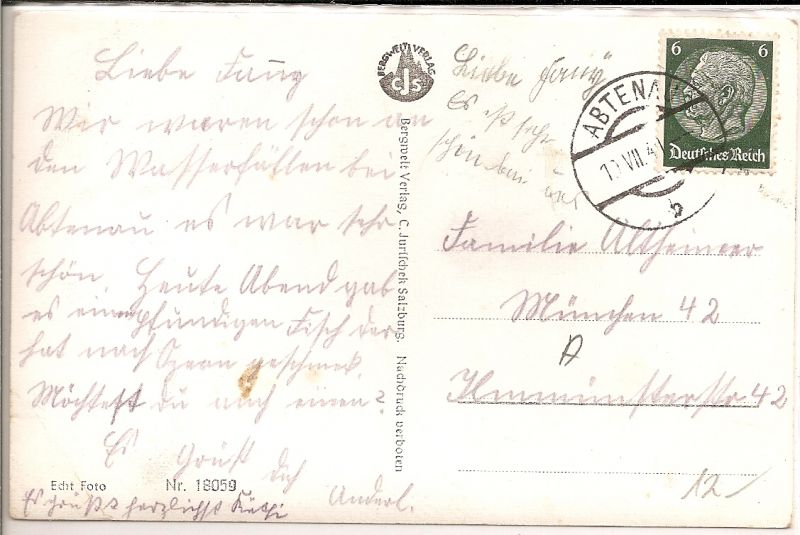 Liebe Fanny
Wir waren schon an
den Wasserfällen bei
Abtenau es war sehr
schön. Heute Abend gab
es einen pfündigen Fisch der
hat nach geschmeckt
Möchtest du auch einen?
Es Grüßt
dich
Anderl.
Es grüßt herzlichst Käthi
Echt Foto Nr. 18059
BERGWELT VERLAG
CJS
Bergwelt Verlag, C. Jurischek Salzburg. Nachdruck verboten
Liebe Fanny
Es ist sehr
schön bei
6 6
Deutsches Reich
ABTENAU
10 VII 41
b
Familie Altheimer
München 42
A
Ilmmünsterstr 42
12